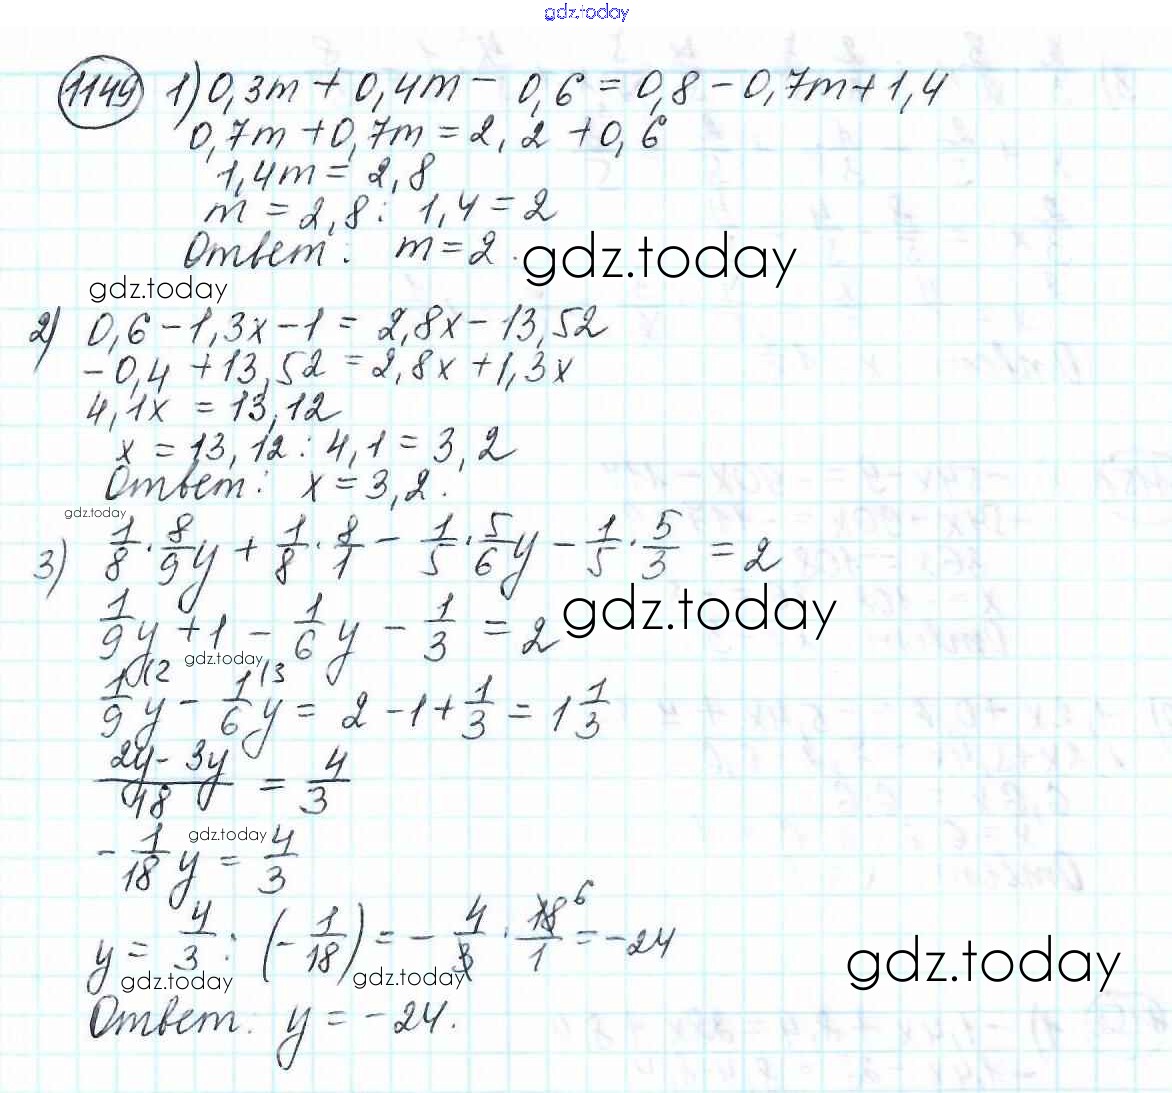 gdz.today
1149 1) 0,3m + 0,4m - 0,6 = 0,8 - 0,7m + 1,4
0,7m + 0,7m = 2,2 + 0,6
1,4m = 2,8
m = 2,8 : 1,4 = 2
Ответ: m = 2.
gdz.today
gdz.today
2) 0,6 - 1,3x - 1 = 2,8x - 13,52
-0,4 + 13,52 = 2,8x + 1,3x
4,1x = 13,12
x = 13,12 : 4,1 = 3,2
Ответ: x = 3,2.
gdz.today
3) 1/8 · 8/9 y + 1/8 · 8/1 - 1/5 · 5/6 y - 1/5 · 5/3 = 2
1/9 y + 1 - 1/6 y - 1/3 = 2
gdz.today
gdz.today
1/9 y \2 - 1/6 y \3 = 2 - 1 + 1/3 = 1 1/3
2y - 3y / 18 = 4/3
gdz.today
- 1/18 y = 4/3
y = 4/3 : (- 1/18) = - 4/3 · 18 6/1 = -24
gdz.today
gdz.today
gdz.today
Ответ: y = -24.